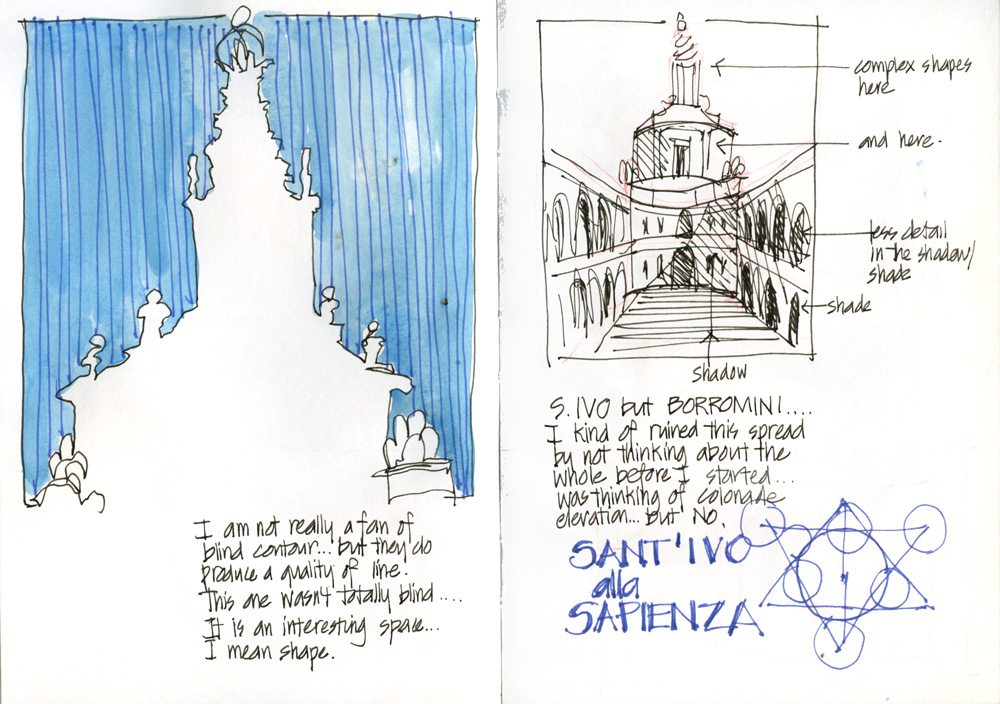 I am not really a fan of
blind contour... but they do
produce a quality of line.
This one wasn't totally blind....
It is an interesting space...
I mean shape.
complex shapes
here
and here.
less detail
in the shadow/
shade
shade
shadow
S. IVO but BORROMINI....
I kind of ruined this spread
by not thinking about the
whole before I started...
was thinking of colonade
elevation... but NO.
SANT'IVO
alla
SAPIENZA